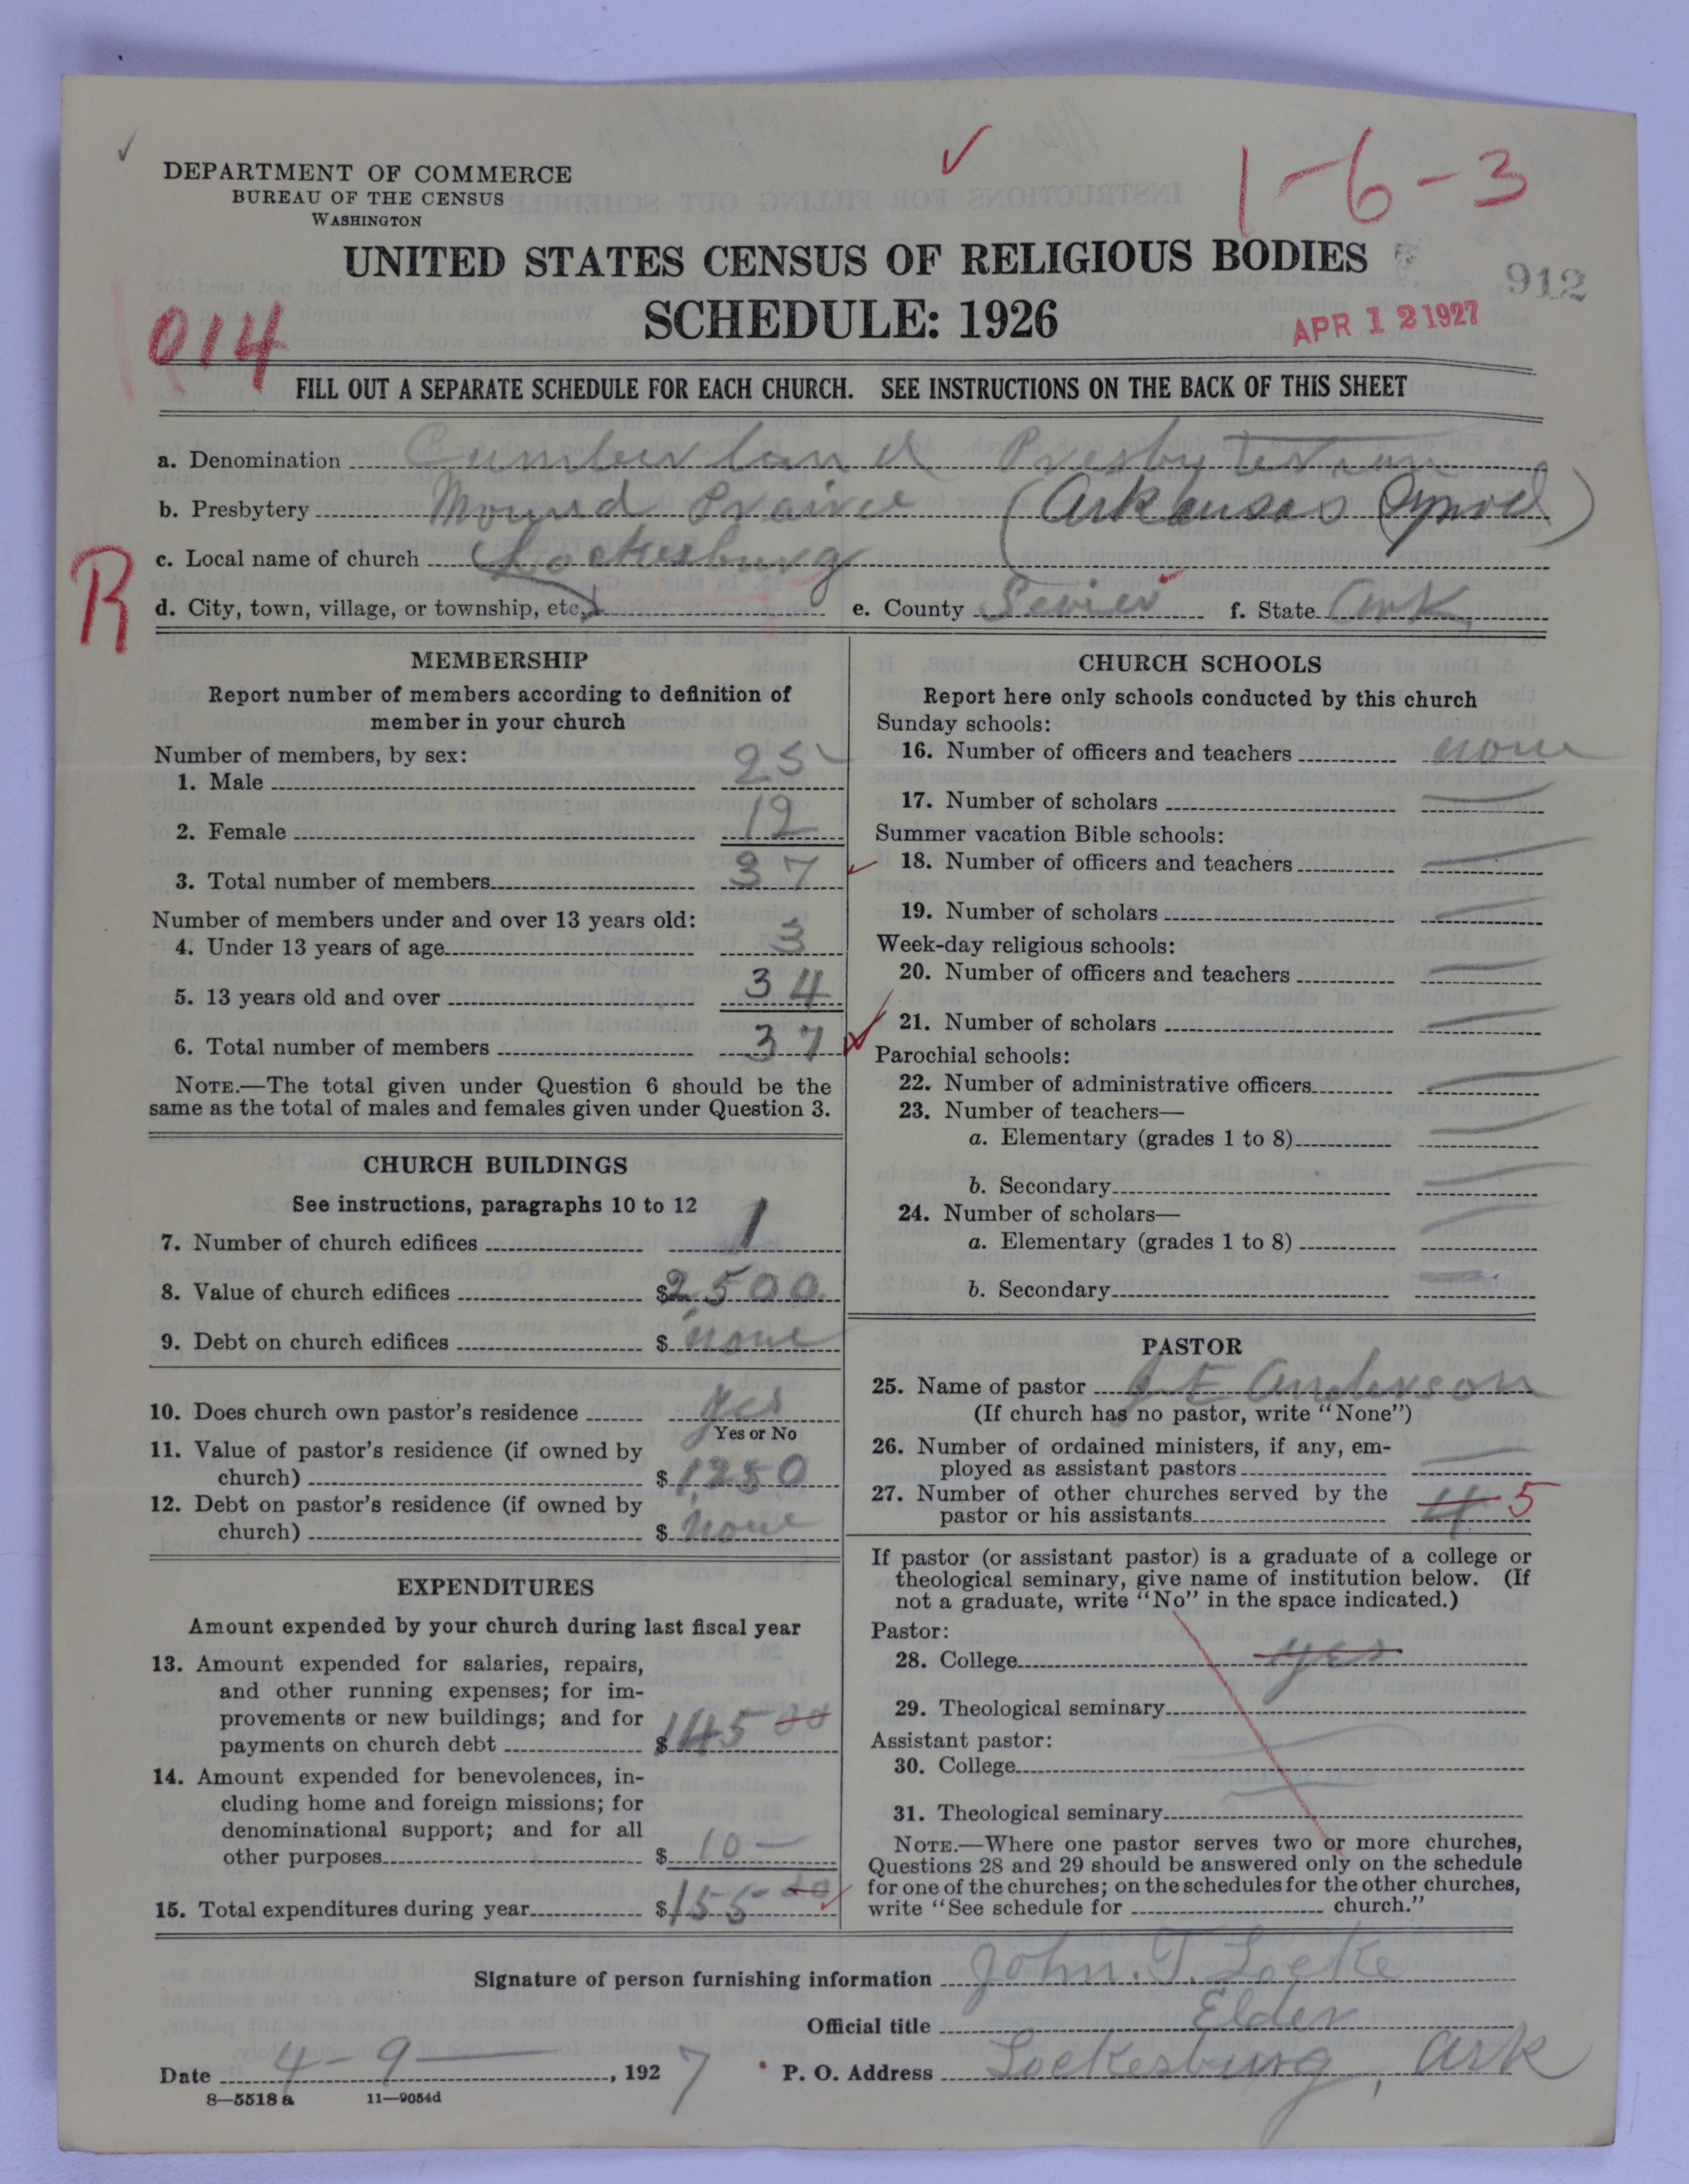 1-6-3
DEPARTMENT OF COMMERCE
BUREAU OF THE CENSUS
WASHINGTON
UNITED STATES CENSUS OF RELIGIOUS BODIES
912
SCHEDULE: 1926
APR 12 1927
014
FILL OUT A SEPARATE SCHEDULE FOR EACH CHURCH. SEE INSTRUCTIONS ON THE BACK OF THIS SHEET
a. Denomination Cumberland Presbyterian
b. Presbytery Mound Prairie (Arkansas Synod)
c. Local name of church Lockesburg
R
d. City, town, village, or township, etc. e. County Sevier f. State Ark
MEMBERSHIP
Report number of members according to definition of
member in your church
Number of members, by sex:
1. Male 25
2. Female 12
3. Total number of members 37
Number of members under and over 13 years old:
4. Under 13 years of age 3
5. 13 years old and over 34
6. Total number of members 37
NOTE.—The total given under Question 6 should be the
same as the total of males and females given under Question 3.
CHURCH BUILDINGS
See instructions, paragraphs 10 to 12
7. Number of church edifices 1
8. Value of church edifices $2,500
9. Debt on church edifices $ none
10. Does church own pastor's residence yes
Yes or No
11. Value of pastor's residence (if owned by
church) $1,250
12. Debt on pastor's residence (if owned by
church) $ none
EXPENDITURES
Amount expended by your church during last fiscal year
13. Amount expended for salaries, repairs,
and other running expenses; for im-
provements or new buildings; and for
payments on church debt $145 00
14. Amount expended for benevolences, in-
cluding home and foreign missions; for
denominational support; and for all
other purposes $ 10—
15. Total expenditures during year $155 00
CHURCH SCHOOLS
Report here only schools conducted by this church
Sunday schools:
16. Number of officers and teachers none
17. Number of scholars
Summer vacation Bible schools:
18. Number of officers and teachers
19. Number of scholars
Week-day religious schools:
20. Number of officers and teachers
21. Number of scholars
Parochial schools:
22. Number of administrative officers
23. Number of teachers—
a. Elementary (grades 1 to 8)
b. Secondary
24. Number of scholars—
a. Elementary (grades 1 to 8)
b. Secondary
PASTOR
25. Name of pastor J E Anderson
(If church has no pastor, write "None")
26. Number of ordained ministers, if any, em-
ployed as assistant pastors
27. Number of other churches served by the
pastor or his assistants 4 5
If pastor (or assistant pastor) is a graduate of a college or
theological seminary, give name of institution below. (If
not a graduate, write "No" in the space indicated.)
Pastor:
28. College yes
29. Theological seminary
Assistant pastor:
30. College
31. Theological seminary
NOTE.—Where one pastor serves two or more churches,
Questions 28 and 29 should be answered only on the schedule
for one of the churches; on the schedules for the other churches,
write "See schedule for church."
Signature of person furnishing information John. T. Locke
Official title Elder
Date 4-9—, 1927 P. O. Address Lockesburg, Ark
8—5518 a 11—9054d